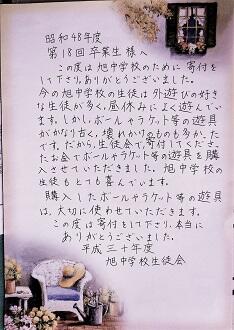 昭和48年度
第18回卒業生様へ
この度は旭中学校のために寄付を
して下さり、ありがとうございました。
今の旭中学校の生徒は外遊びの好き
な生徒が多く、昼休みによく遊んでい
ます。しかし、ボールやラケット等の遊具
がかなり古く、壊れかりのものも多か、た
です。だから、生徒会で、寄付してくださっ
たお金でボールやラケット等の遊具を購
入させていただきました。旭中学校の
生徒もとても喜んでいます。
購入したボールやラケット等の遊具
は、大切に使わせていただきます。
この度は寄付をして下さり、本当に
ありがとうございました。
平成三十年度
旭中学校生徒会